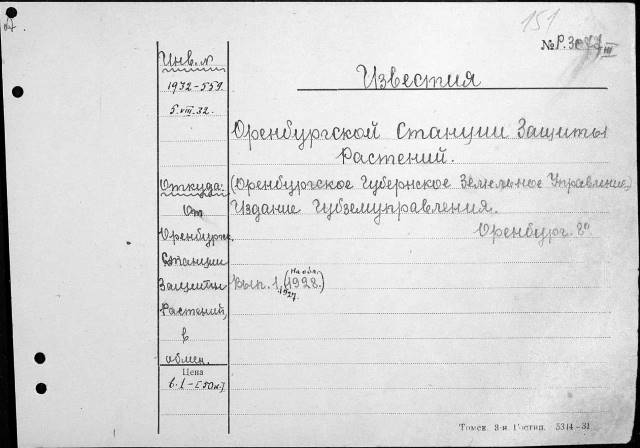 151
№ Р. 3077/III
Известия
Оренбургской Станции Защиты
Растений.
(Оренбургское Губернское Земельное Управление.)
Издание Губземуправления.
Оренбург. 8º.
Вып. 1, (на обл. 1928.)
1927.
Инв. №
1932-559
5.VIII.32.
Откуда:
От
Оренбургск.
Станции
Защиты
Растений,
в
обмен.
Цена
в.1-[50к.]
Томск. 3-я Гостип. 5314-31